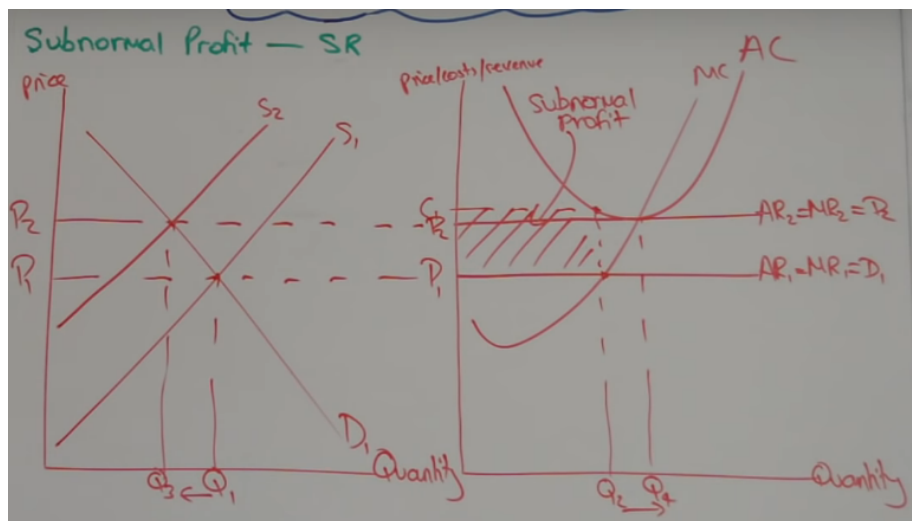 Subnormal Profit — SR
Price
S2
S1
P2
P1
D1
Quantity
Q3 ← Q1
Price/costs/revenue
Subnormal
Profit
MC
AC
C1
P2
P1
AR2=MR2=D2
AR1=MR1=D1
Q2 → Q4
Quantity